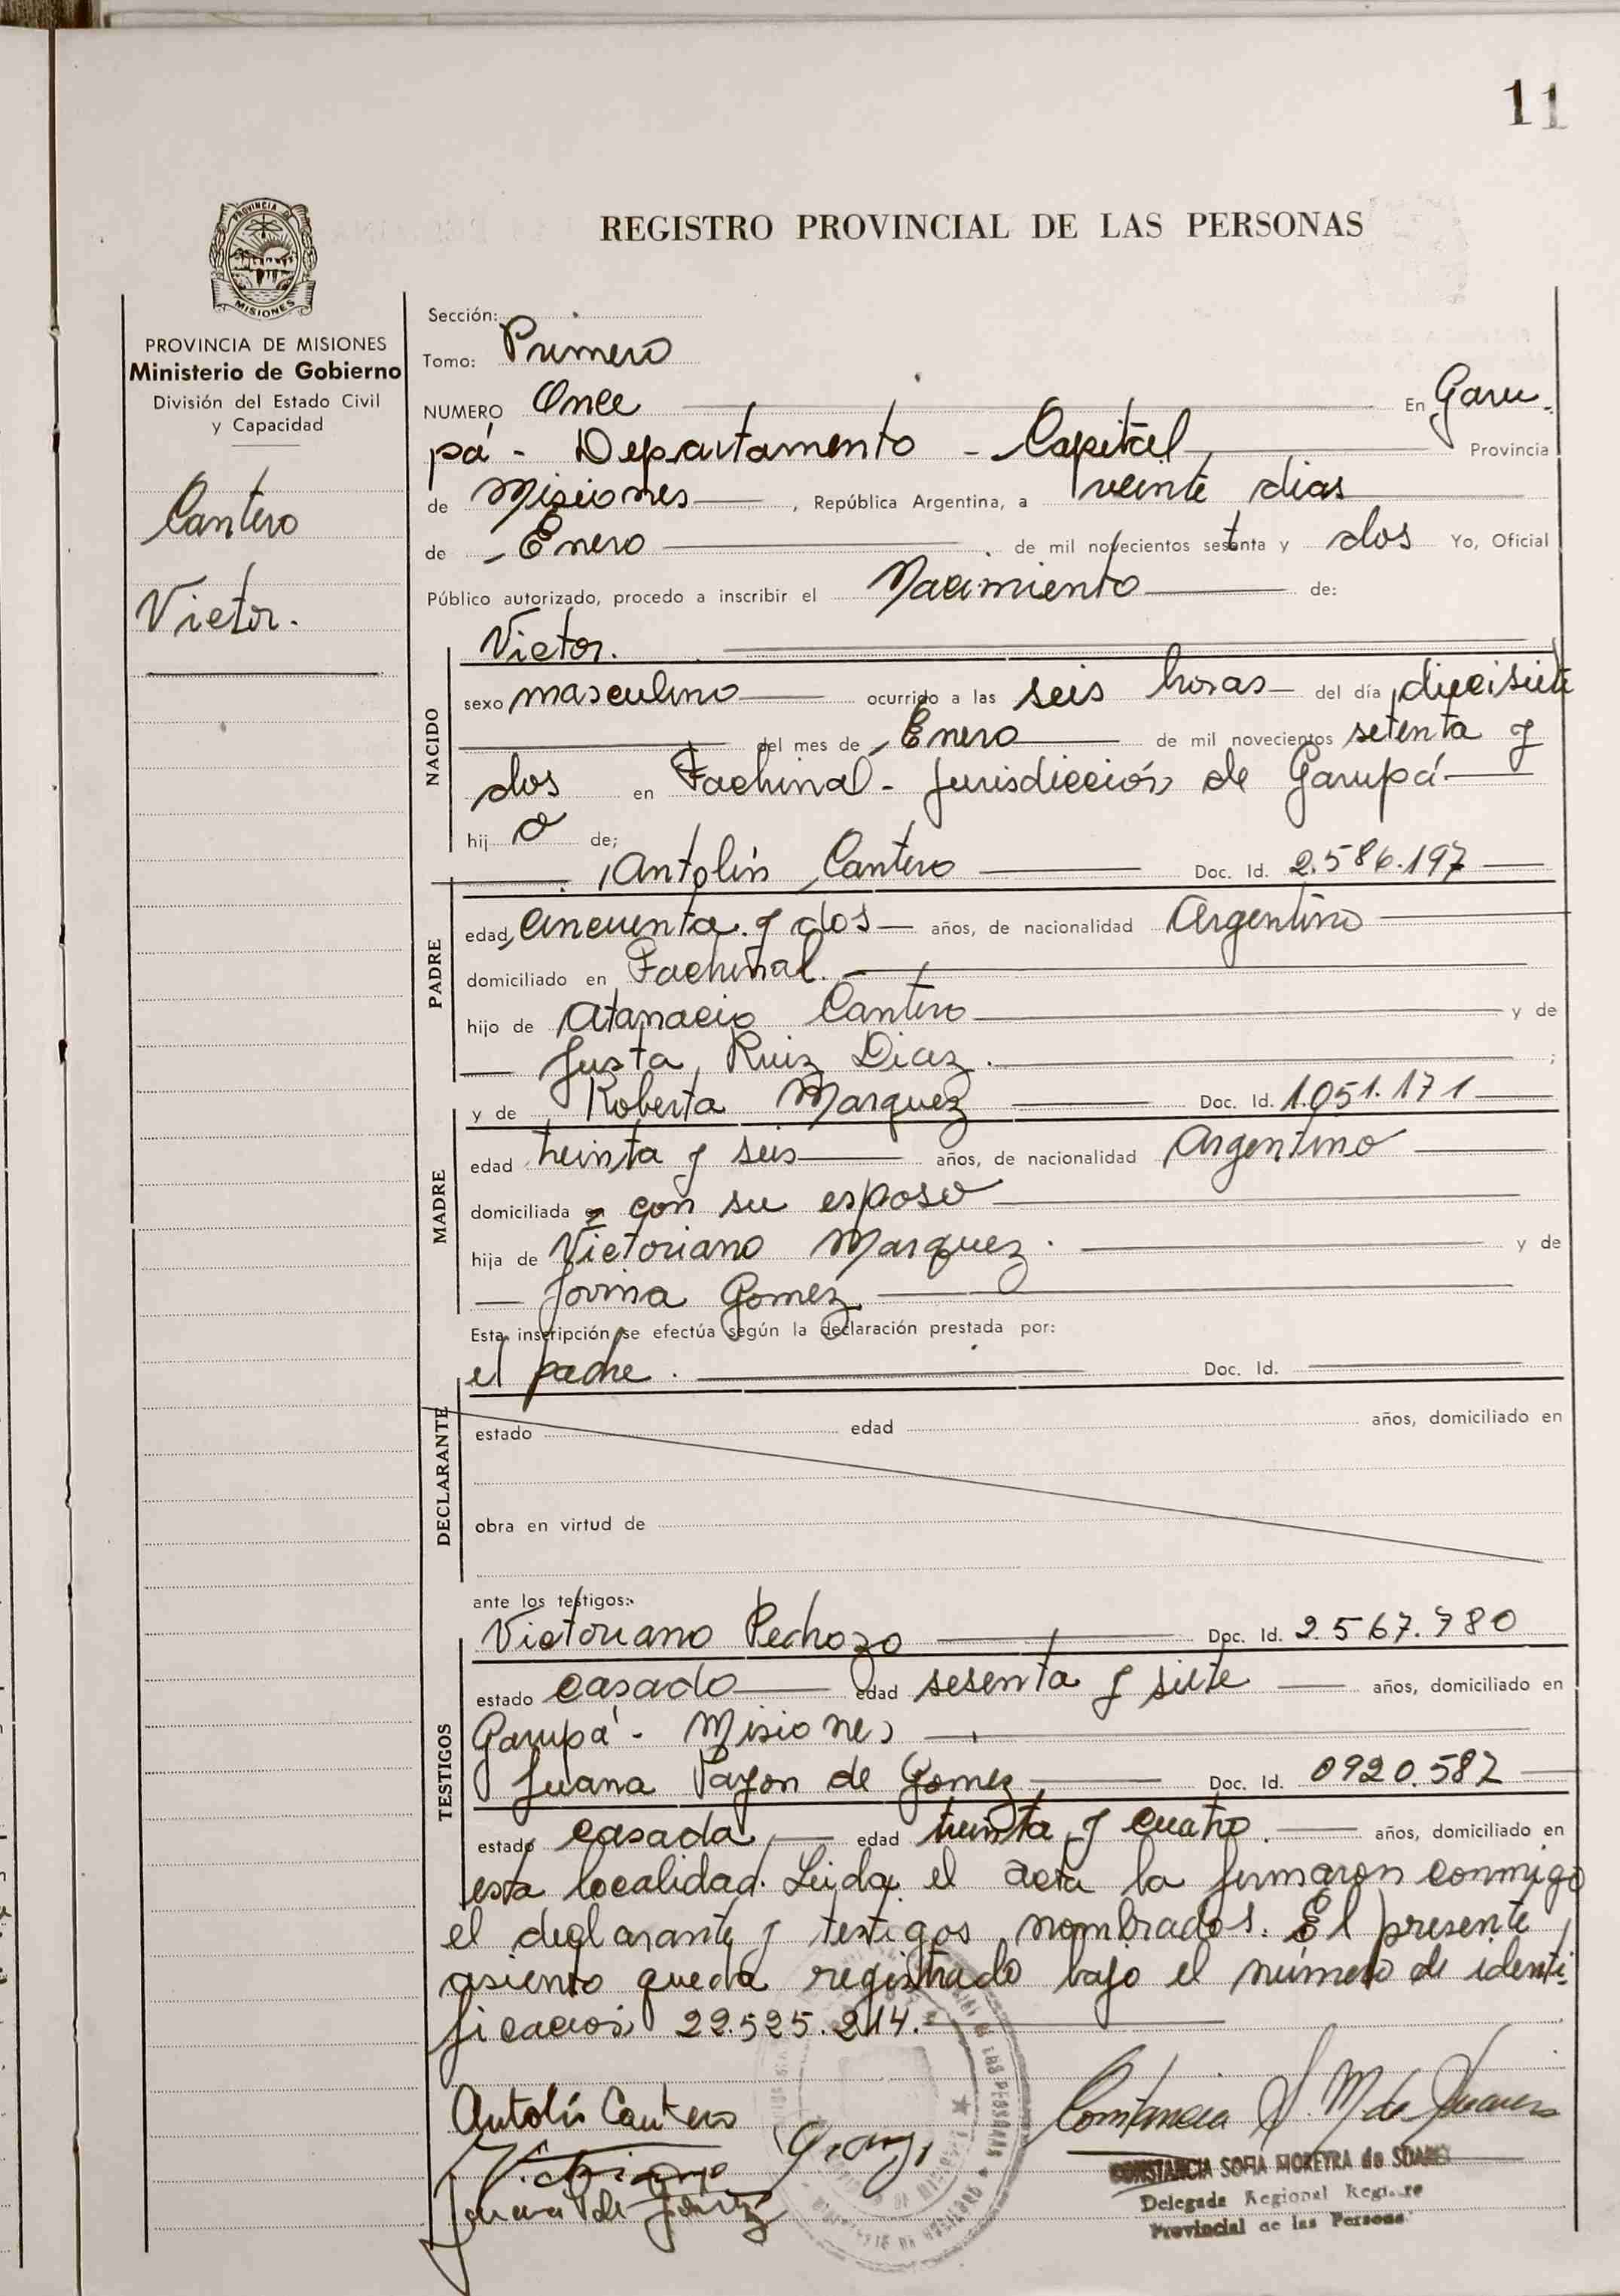 11
PROVINCIA DE
MISIONES
REGISTRO PROVINCIAL DE LAS PERSONAS
PROVINCIA DE MISIONES
Ministerio de Gobierno
División del Estado Civil
y Capacidad
Cantero
Victor.
Sección:
Tomo: Primero
NUMERO Once En Garu-
pá - Departamento - Capital Provincia
de Misiones, República Argentina, a veinte dias
de Enero de mil novecientos setenta y dos Yo, Oficial
Público autorizado, procedo a inscribir el Nacimiento de:
Victor.
NACIDO
sexo masculino ocurrido a las seis horas del día diecisiete
del mes de Enero de mil novecientos setenta y
dos en Fachinal - Jurisdicción de Garupá
hij o de;
Antolín Cantero Doc. Id. 2.586.197
PADRE
edad, cincuenta y dos años, de nacionalidad Argentino
domiciliado en Fachinal.
hijo de Atanacio Cantero y de
Justa Ruiz Diaz.;
y de Roberta Marquez Doc. Id. 1.051.171
MADRE
edad treinta y seis años, de nacionalidad Argentino
domiciliada con su esposo
hija de Victoriano Marquez. y de
Jovina Gomez
Esta inscripción se efectúa según la declaración prestada por:
el padre. Doc. Id.
DECLARANTE
estado edad años, domiciliado en
obra en virtud de
ante los testigos:
Victoriano Pedrozo Doc. Id. 2.567.780
TESTIGOS
estado casado edad sesenta y siete años, domiciliado en
Garupá - Misiones
Juana Payon de Gomez Doc. Id. 0920.587
estado casada edad treinta y cuatro. años, domiciliado en
esta localidad. Leida el acta la firmaron conmigo
el declarante y testigos nombrados. El presente
asiento queda registrado bajo el número de identi-
ficación 22.525.214.
Antolín Cantero
Constancia S. M de Suarez
Juana P de Gomez
CONSTANCIA SOFIA MOREYRA de
Delegada Regional
Provincial de las Persona